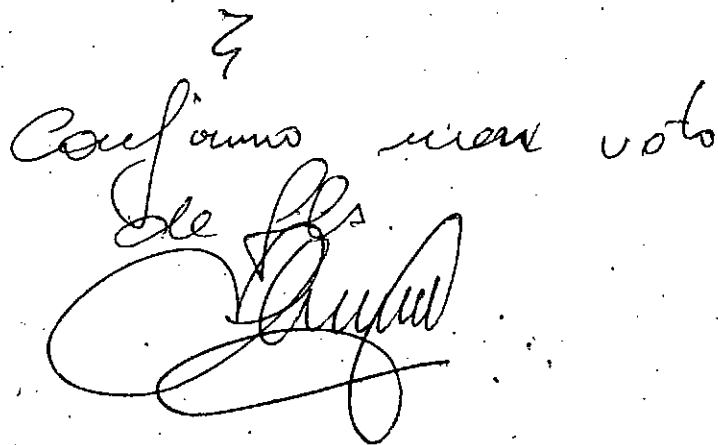 Confirmo meu voto
de fls.